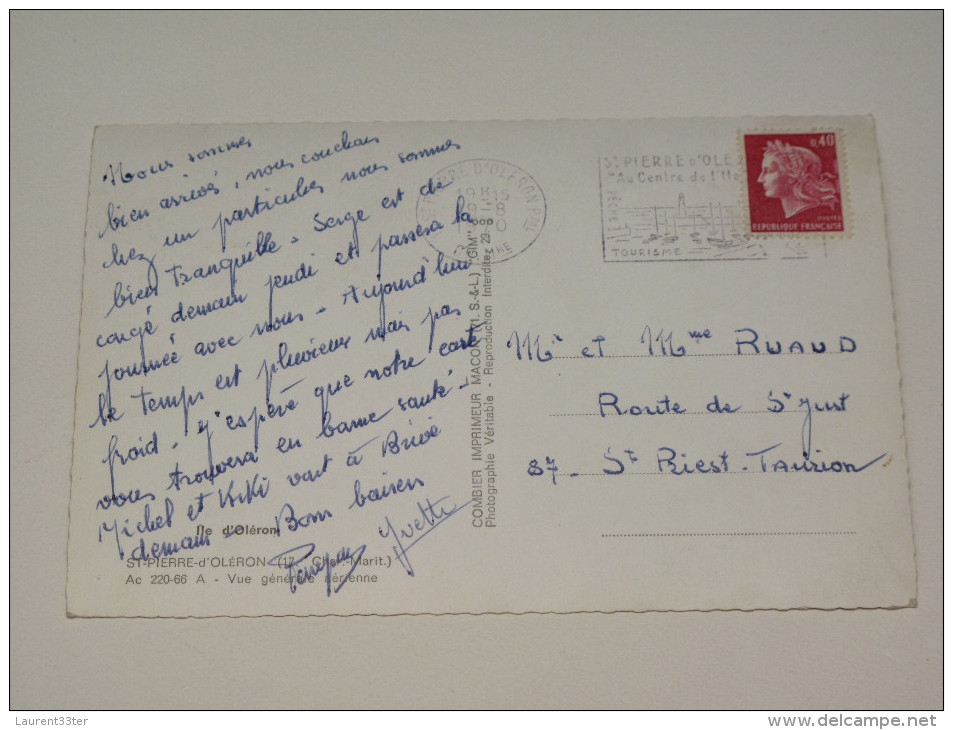 Nous sommes
bien arrivés, nous couchons
chez un particulier nous sommes
bien tranquille - Serge est de
congé demain jeudi et passera la
journée avec nous - Aujourd'hui
le temps est pluvieux mais pas
froid - J'espère que notre carte
vous trouvera en bonne santé -
Michel et Kiki vont à Brive
demain - Bons baisers
Yvette
Ile d'Oléron
ST-PIERRE-d'OLÉRON (17 - Ch.-Marit.)
Ac 220-66 A - Vue générale aérienne
COMBIER IMPRIMEUR MACON (71. S.-&-L.) "CIM"
Photographie Véritable - Reproduction Interdite
ST PIERRE D'OLERON
19 H 15
ST PIERRE d'OLE
"Au Centre de l'Ile
PÊCHE
TOURISME
0,40
POSTES
REPUBLIQUE FRANÇAISE
Mr et Mme RUAUD
Route de St Just
87 - St Priest-Taurion
Laurent33ter
www.delcampe.net